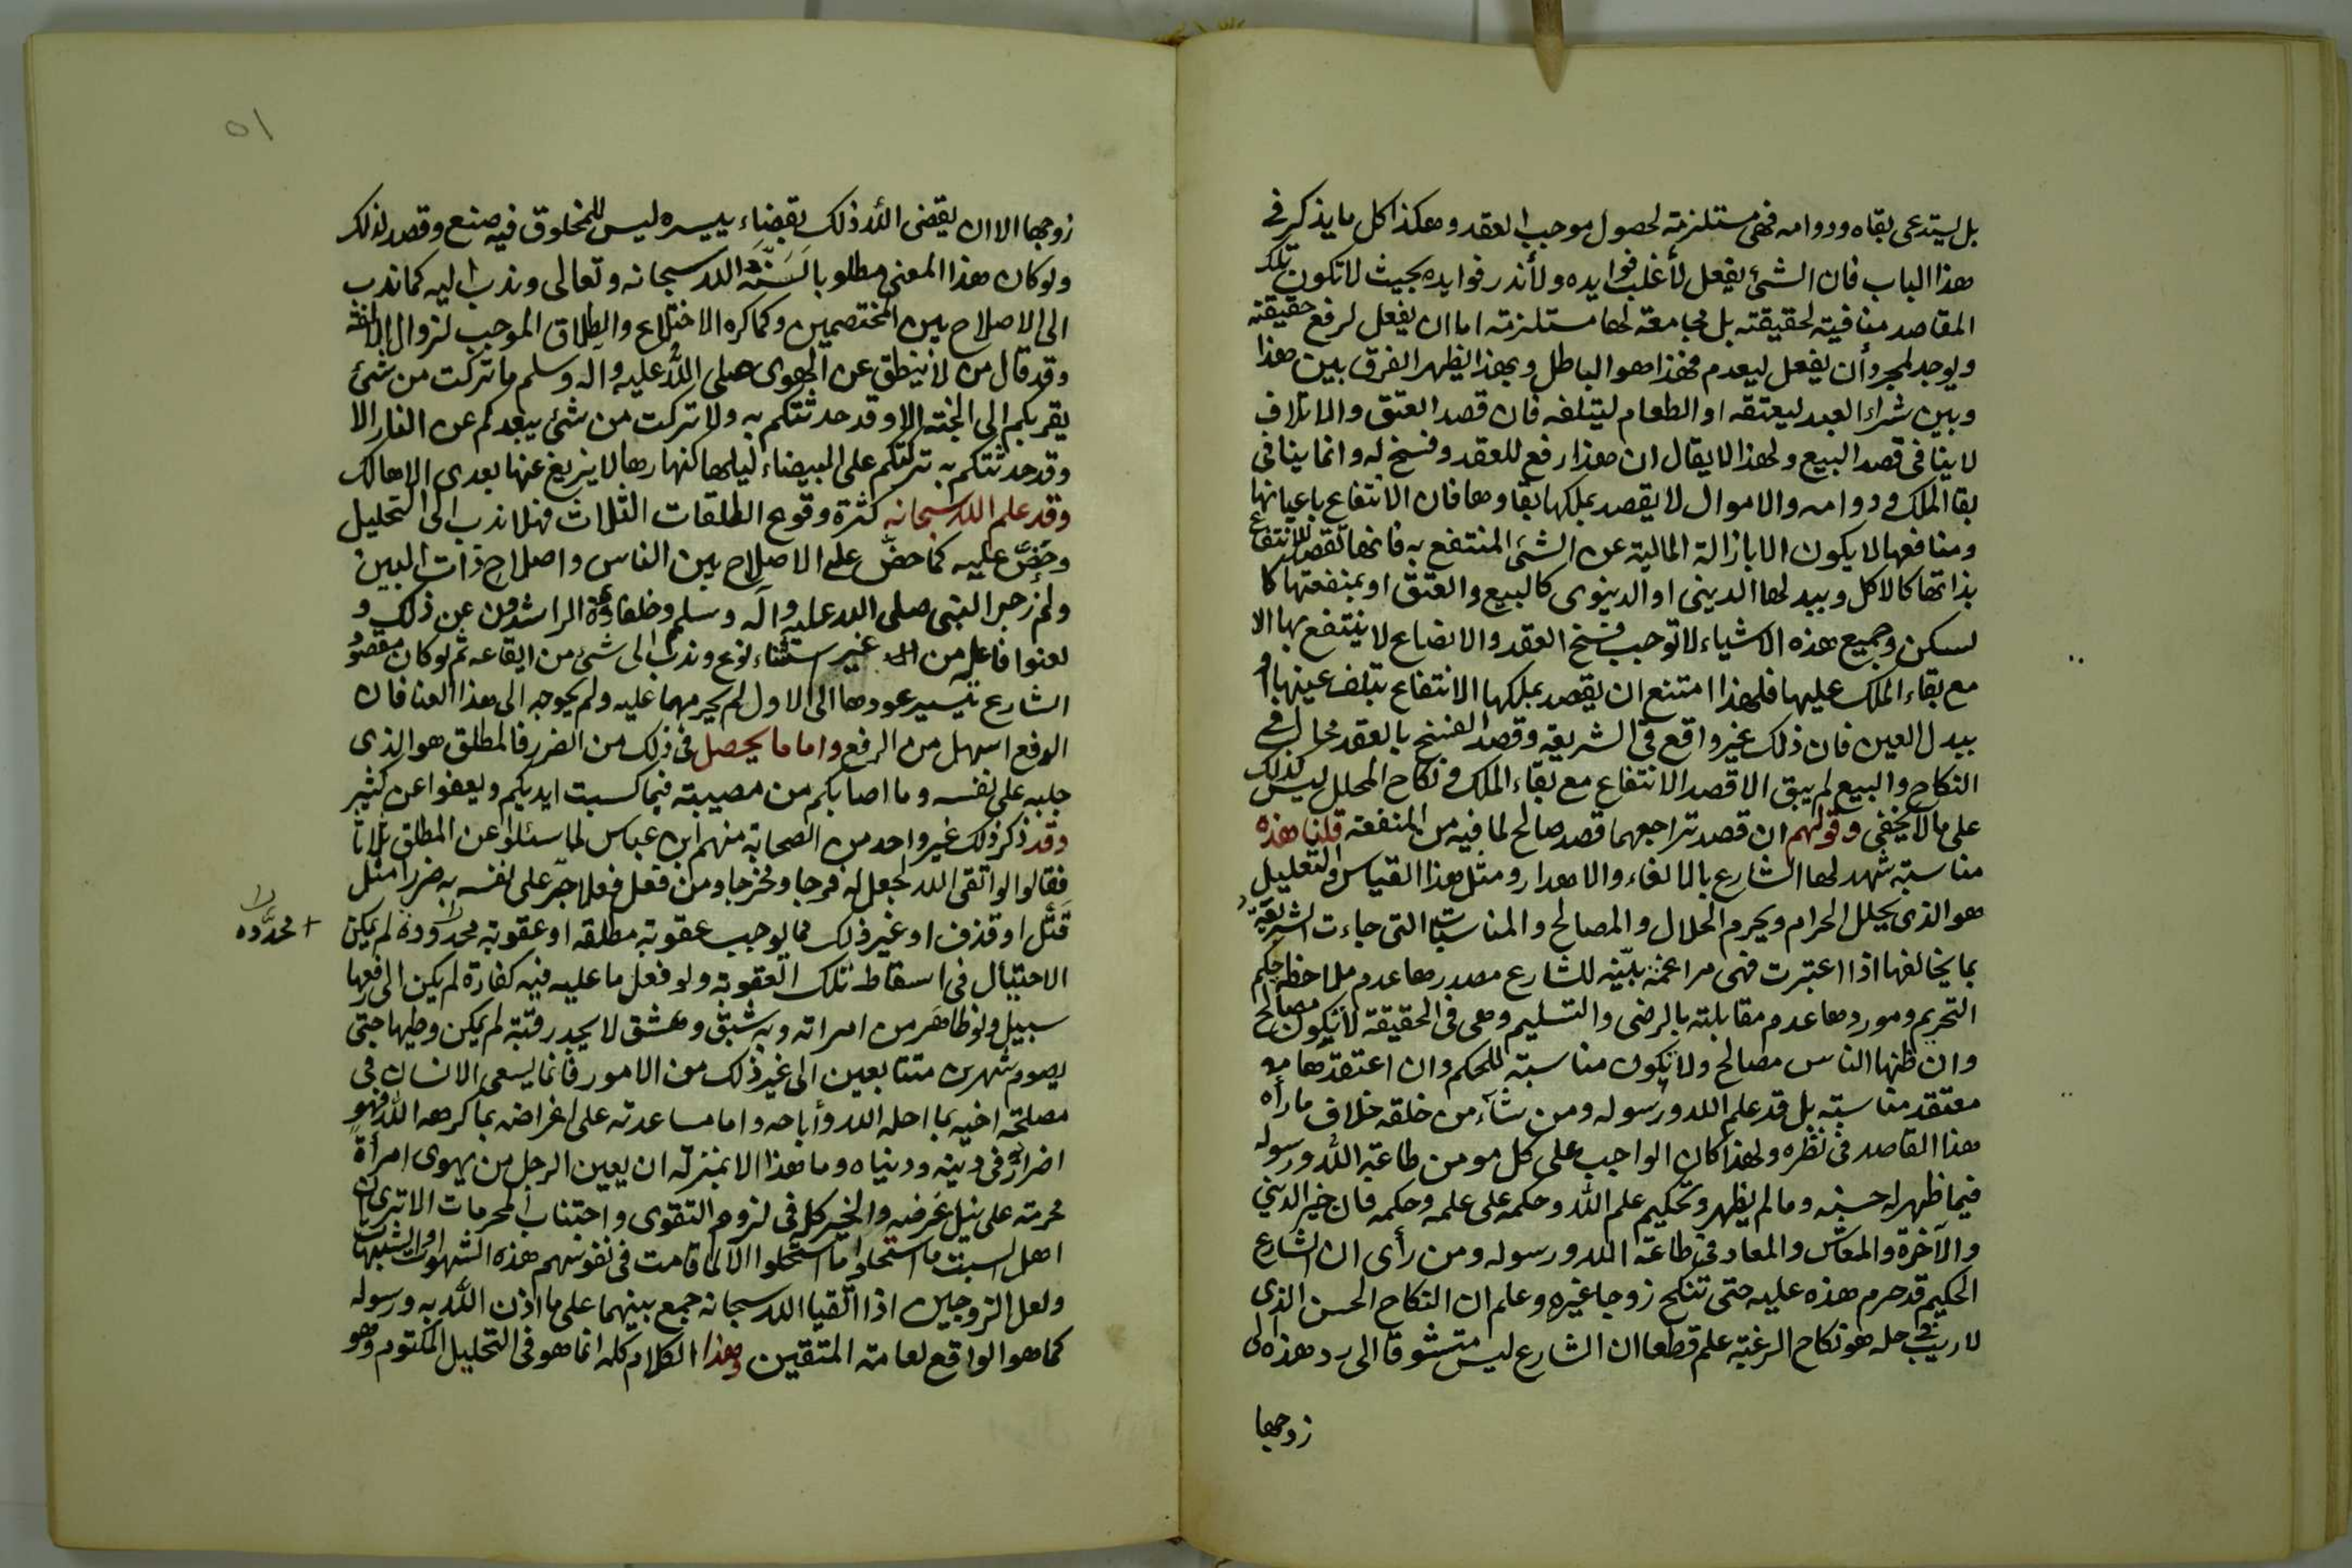 بل يستدعى بقاه ودوامه فهى مستلزمة لحصول موجب العقد وهكذا كل ما يذكر فى
هذا الباب فان الشئ يفعل لأغلب فوايده ولأندر فوايده بحيث لا تكون تلك
المقاصد منافية لحقيقته بل مجامعة لها مستلزمة اما ان يفعل لرفع حقيقته
ويوجد لمجرد أن يفعل ليعدم فهذا هو الباطل وبهذا يظهر الفرق بين هذا
وبين شراء العبد ليعتقه او الطعام ليتلفه فان قصد العتق والاتلاف
لا ينافى قصد البيع ولهذا لا يقال ان هذا رفع للعقد وفسخ له وانما ينافى
بقا الملك ودوامه والاموال لا يقصد بملكها بقاوها فان الانتفاع باعيانها
ومنافعها لا يكون الا بازالة المالية عن الشئ المنتفع به فانها تقصد للانتفاع
بذاتها كالاكل وببدلها الدينى او الدنيوى كالبيع والعتق او بمنفعتها كا
لسكن وجميع هذه الاشياء لا توجب فسخ العقد والابضاع لا ينتفع بها الا
مع بقاء الملك عليها فلهذا امتنع ان يقصد بملكها الانتفاع بتلف عينها او
ببدل العين فان ذلك غير واقع فى الشريعة وقصد الفسخ بالعقد محال فى
النكاح والبيع لم يبق الا قصد الانتفاع مع بقاء الملك ونكاح المحلل ليس كذلك
على ما لا يخفى وقولهم ان قصد تراجعهما قصد صالح لما فيه من المنفعة قلنا هذه
مناسبة شهد لها الشارع بالالغاء والاهدار ومثل هذا القياس والتعليل
هو الذى يحلل الحرام ويحرم الحلال والمصالح والمناسبات التى جاءت الشريعة
بما يخالفها اذا اعتبرت فهى مراغمة بيّنه للشارع مصدرها عدم ملاحظة حكم
التحريم وموردها عدم مقابلته بالرضى والتسليم وهى فى الحقيقة لا تكون مصالح
وان ظنها الناس مصالح ولا تكون مناسبة للحكم وان اعتقدها
معتقد مناسبة بل قد علم الله ورسوله ومن شآء من خلقه خلاف ما رأه
هذا القاصد فى نظره ولهذا كان الواجب على كل مومن طاعة الله ورسوله
فيما ظهر له حسنه وما لم يظهر وتحكيم علم الله وحكمه على علمه وحكمه فان خير الدينى
والآخرة والمعاش والمعاد فى طاعة الله ورسوله ومن رأى ان الشارع
الحكيم قد حرم هذه عليه حتى تنكح زوجا غيره وعلم ان النكاح الحسن الذى
لا ريب فى حله هو نكاح الرغبة علم قطعا ان الشارع ليس متشوقا الى رد هذه الى
زوجها
٥١
زوجها الا ان يقضى الله ذلك بقضاء ييسره ليس للمخلوق فيه صنع وقصد لذلك
ولو كان هذا المعنى مطلوبا لسنّه الله سبحانه وتعالى وندب اليه كما ندب
الى الاصلاح بين المختصمين وكما كره الاختلاع والطلاق الموجب لزوال الالفة
وقد قال من لا ينطق عن الهوى صلى الله عليه واله وسلم ما تركت من شئ
يقربكم الى الجنة الا وقد حدثتكم به ولا تركت من شئ يبعدكم عن النار الا
وقد حدثتكم به تركتكم على البيضاء ليلها كنهارها لا يزيغ عنها بعدى الا هالك
وقد علم الله سبحانه كثرة وقوع الطلقات الثلاث فهلا ندب الى التحليل
وحَضّ عليه كما حضّ على الاصلاح بين الناس واصلاح ذات البين
ولم زجر النبى صلى الله عليه وآله وسلم وخلفاؤه الراشدون عن ذلك و
لعنوا فاعله من غير استثناء نوع وندب الى شئ من ايقاعه ثم لو كان مقصود
الشارع تيسير عودها الى الاول لم يحرمها عليه ولم يحوجه الى هذا العنا فان
الدفع اسهل من الرفع واما ما يحصل فى ذلك من الضرر فالمطلق هو الذى
جلبه على نفسه وما اصابكم من مصيبة فبما كسبت ايديكم ويعفوا عن كثير
وقد ذكر ذلك غير واحد من الصحابة منهم ابن عباس لما سئلوا عن المطلق ثلاثا
فقالوا لو اتقى الله لجعل له فرجا ومخرجا ومن فعل فعلا جرّ على نفسه به ضررا مثل
قَتْل او قذف او غير ذلك مما يوجب عقوبة مطلقه او عقوبة محدودة لم يمكن
+ محدَّده
الاحتيال فى اسقاط تلك العقوبة ولو فعل ما عليه فيه كفارة لم يكن الى رفعها
سبيل ولو ظاهَر من امراته وبه شبق وعشق لا يجد رقبة لم يمكن وطيها حتى
يصوم شهرين متتابعين الى غير ذلك من الامور فانما يسعى الانسان فى
مصلحة اخيه بما احله الله وأباحه واما مساعدته على اغراضه بما كرهه الله فهو
اضرار به فى دينه ودنياه وما هذا الا بمنزلة ان يعين الرجل من يهوى امرأة
محرمة على نيل غرضه والخير كل فى لزوم التقوى واجتناب المحرمات الا ترى ان
اهل السبت ما استحلوا ما استحلوا الا لما قامت فى نفوسهم هذه الشهوات او الشبهات
ولعل الزوجين اذا اتقيا الله سبحانه جمع بينهما على ما اذن الله به ورسوله
كما هو الواقع لعامة المتقين وهذا الكلام كله انما هو فى التحليل المكتوم وهو